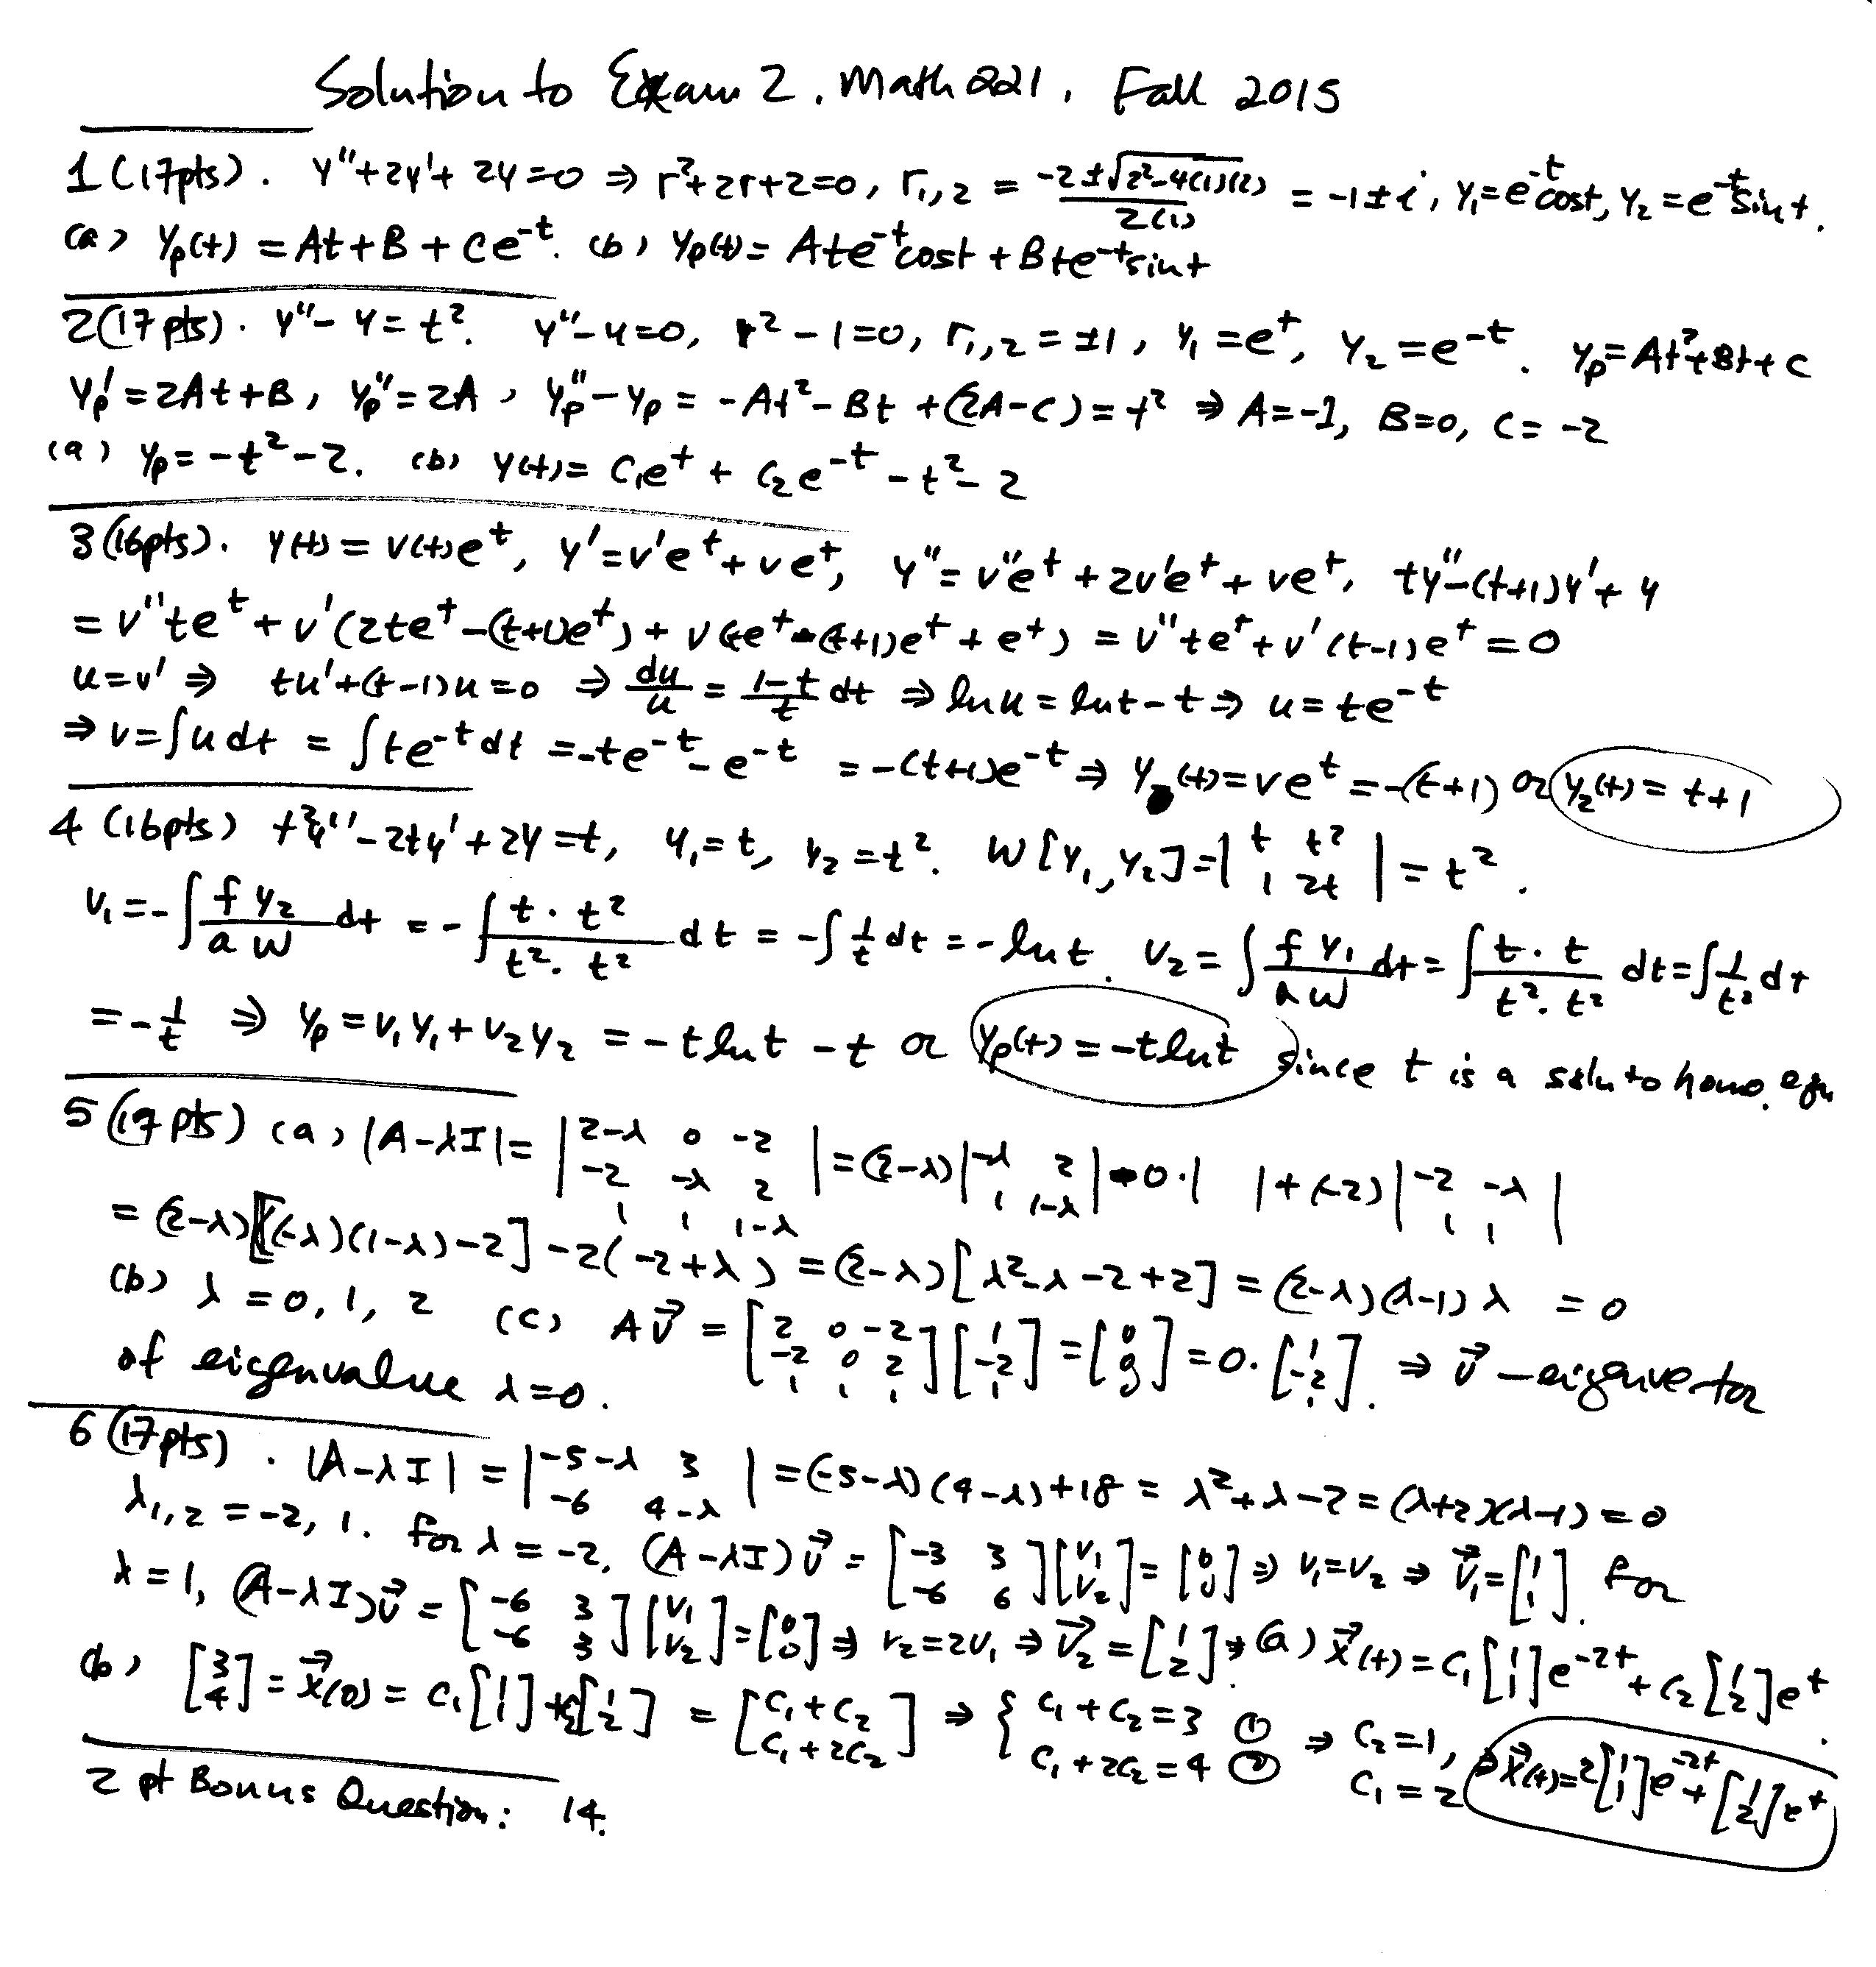 Solution to Exam 2. Math 221, Fall 2015
1 (17pts). y''+2y'+2y=0 ⇒ r²+2r+2=0, r₁,₂ = (-2±√(2²-4(1)(2)))/(2(1)) = -1±i, y₁=e^-t cost, y₂=e^-t sint.
(a) yp(t) = At+B+Ce^-t. (b) yp(t)= Ate^-t cost + Bte^-t sint
2 (17 pts). y''-y=t². y''-y=0, r²-1=0, r₁,₂=±1, y₁=e^t, y₂=e^-t. yp=At²+Bt+C
yp'=2At+B, yp''=2A, yp''-yp = -At²-Bt+(2A-C)=t² ⇒ A=-1, B=0, C=-2
(a) yp=-t²-2. (b) y(t)= C₁e^t + C₂e^-t -t²-2
3 (16pts). y(t)=v(t)e^t, y'=v'e^t+ve^t, y''=v''e^t+2v'e^t+ve^t, ty''-(t+1)y'+y
= v''te^t+v'(2te^t-(t+1)e^t)+v(te^t-(t+1)e^t+e^t) = v''te^t+v'(t-1)e^t=0
u=v' ⇒ tu'+(t-1)u=0 ⇒ du/u = (1-t)/t dt ⇒ ln u = ln t - t ⇒ u=te^-t
⇒ v=∫udt = ∫te^-t dt =-te^-t-e^-t = -(t+1)e^-t ⇒ y₂(t)=ve^t=-(t+1) or y₂(t)=t+1
4 (16pts) t²y''-2ty'+2y=t, y₁=t, y₂=t². W[y₁,y₂]=| t t² ; 1 2t |=t².
v₁=-∫ f y₂/(a W) dt = -∫ t·t²/(t²·t²) dt = -∫ 1/t dt = -ln t. v₂=∫ f y₁/(a W) dt=∫ t·t/(t²·t²) dt=∫ 1/t² dt
=-1/t ⇒ yp=v₁y₁+v₂y₂ = -t ln t - t or yp(t)=-t ln t since t is a soln to homo. eqn
5 (17 pts) (a) |A-λI|= | 2-λ 0 -2 ; -2 -λ 2 ; 1 1 1-λ | =(2-λ)| -λ 2 ; 1 1-λ | -0·| | +(-2)| -2 -λ ; 1 1 |
= (2-λ)[(-λ)(1-λ)-2]-2(-2+λ) = (2-λ)[λ²-λ-2+2] = (2-λ)(λ-1)λ = 0
(b) λ=0, 1, 2 (c) Av⃗ = [2 0 -2 ; -2 0 2 ; 1 1 1][1 ; -2 ; 1]=[0 ; 0 ; 0]=0·[1 ; -2 ; 1]. ⇒ v⃗ -eigenvector
of eigenvalue λ=0.
6 (17pts). |A-λI| = | -5-λ 3 ; -6 4-λ | =(-5-λ)(4-λ)+18 = λ²+λ-2=(λ+2)(λ-1)=0
λ₁,₂=-2, 1. for λ=-2, (A-λI)v⃗ = [-3 3 ; -6 6][v₁ ; v₂]=[0 ; 0] ⇒ v₁=v₂ ⇒ v⃗₁=[1 ; 1]. for
λ=1, (A-λI)v⃗ = [-6 3 ; -6 3][v₁ ; v₂]=[0 ; 0] ⇒ v₂=2v₁ ⇒ v⃗₂=[1 ; 2] ⇒ (a) x⃗(t)=C₁[1 ; 1]e^-2t+C₂[1 ; 2]e^t.
(b) [3 ; 4]=x⃗(0)=C₁[1 ; 1]+C₂[1 ; 2] = [C₁+C₂ ; C₁+2C₂] ⇒ { C₁+C₂=3 ① ; C₁+2C₂=4 ② ⇒ C₂=1, C₁=2 ⇒ x⃗(t)=2[1 ; 1]e^-2t+[1 ; 2]e^t
2 pt Bonus Question: 14.